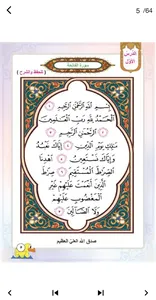 5 /64
الدرس
الأول
سورة الفاتحة
( للحفظ والشرح )
بِسْمِ اللَّهِ الرَّحْمَٰنِ الرَّحِيمِ
الْحَمْدُ لِلَّهِ رَبِّ الْعَالَمِينَ
الرَّحْمَٰنِ الرَّحِيمِ
مَالِكِ يَوْمِ الدِّينِ إِيَّاكَ نَعْبُدُ
وَإِيَّاكَ نَسْتَعِينُ اهْدِنَا
الصِّرَاطَ الْمُسْتَقِيمَ صِرَاطَ
الَّذِينَ أَنْعَمْتَ عَلَيْهِمْ غَيْرِ
الْمَغْضُوبِ عَلَيْهِمْ
وَلَا الضَّالِّينَ
صدق الله العلي العظيم